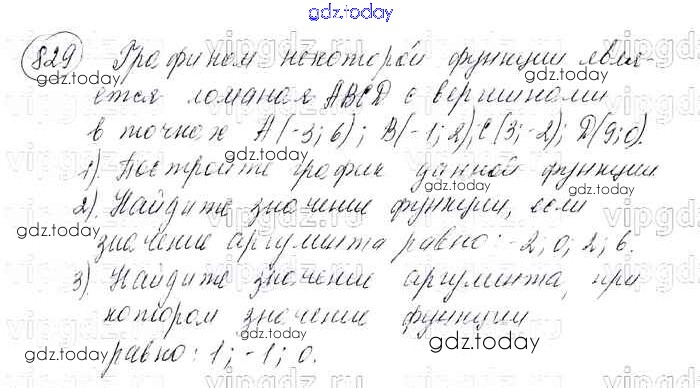 gdz.today
829 Графиком некоторой функции явля-
ется ломаная ABCD с вершинами
в точках A(-3; 6); B(-1; 2); C(3; -2); D(9; 0).
1). Постройте график данной функции
2). Найдите значение функции, если
значение аргумента равно: -2; 0; 2; 6.
3). Найдите значение аргумента, при
котором значение функции
равно: 1; -1; 0.
gdz.today
gdz.today
gdz.today
gdz.today
gdz.today
gdz.today
gdz.today
gdz.today
gdz.today